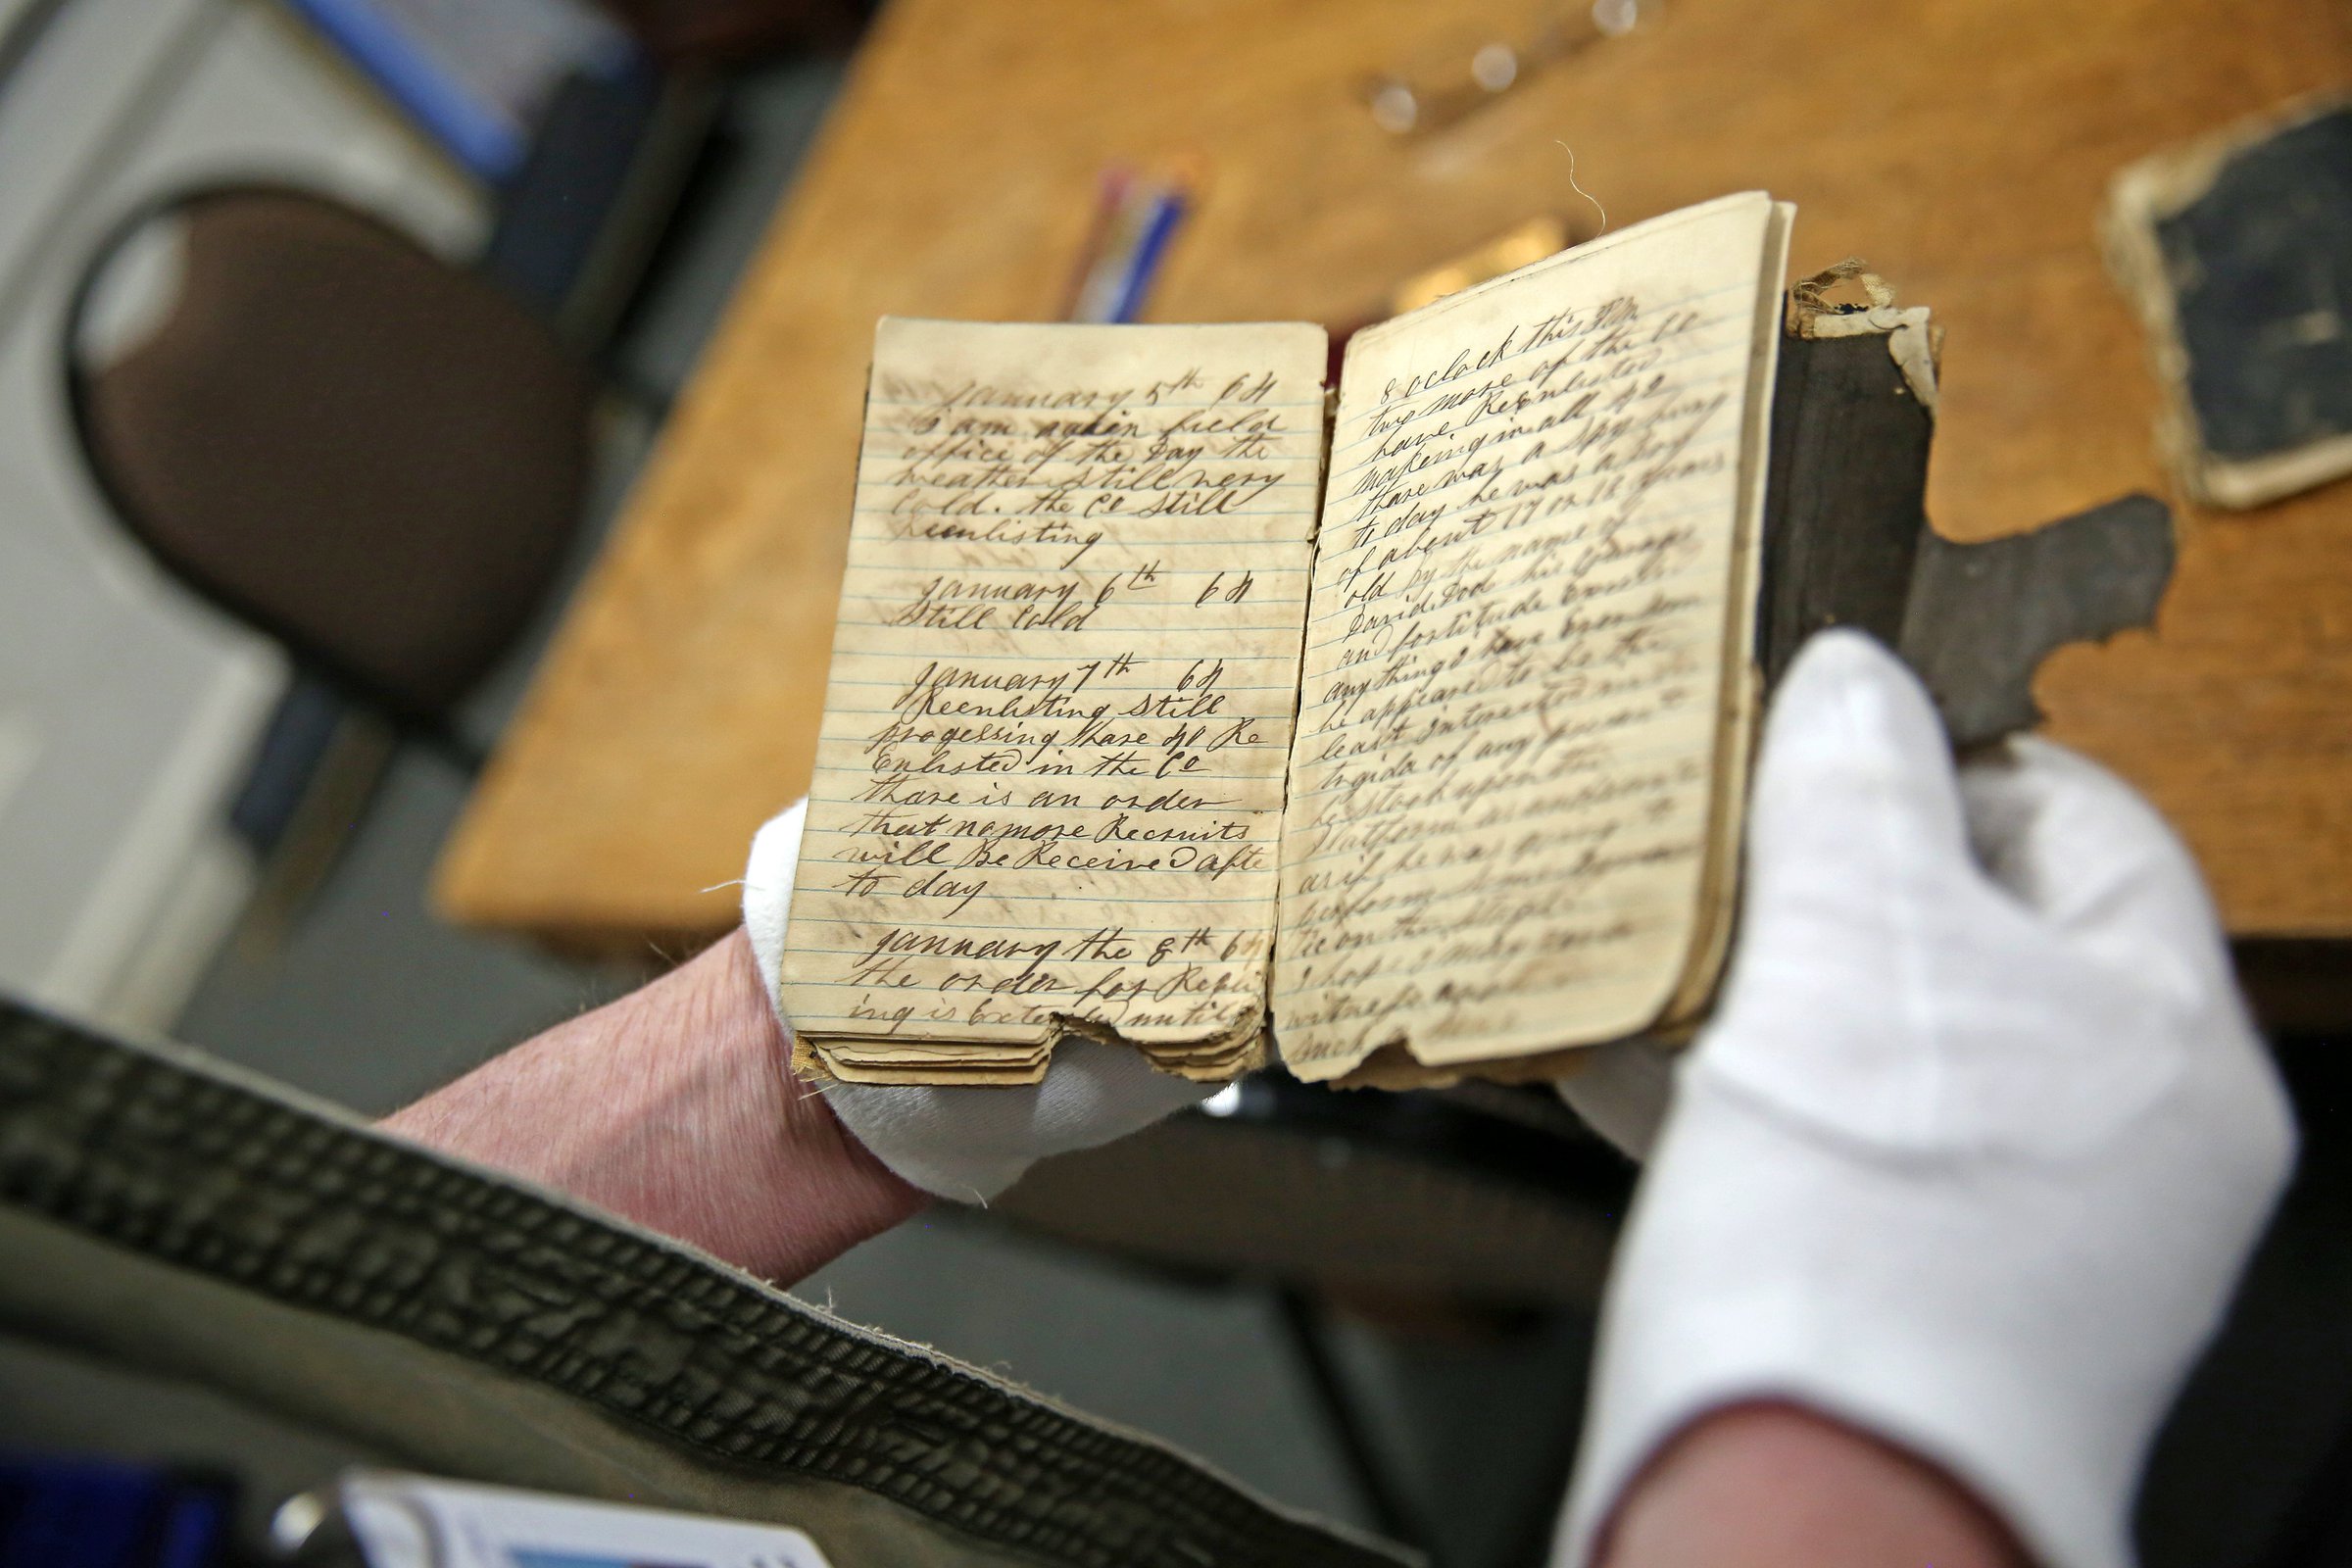 January 5th 64
I am again field
office of the Day the
weather still very
Cold. the Co still
Reenlisting
January 6th 64
Still Cold
January 7th 64
Reenlisting Still
progessing thare 40 Re
Enlisted in the Co
thare is an order
that no more Recruits
will Be Received afte
to day
January the 8th 64
the order for
ing is until
8 oclock this PM
two more of the Co
have Reenlisted
makeing in all 42
thare was a Spy hung
to day he was a boy
of about 17 or 18 years
old by the name of
David Dod his Courage
and fortitude
anything I have
he appeared to be the
least Interested
of any present
he stood upon the
Platform as
as if he was going to
perform some
tic on the Stage
I hope I may never
witness another
Such a